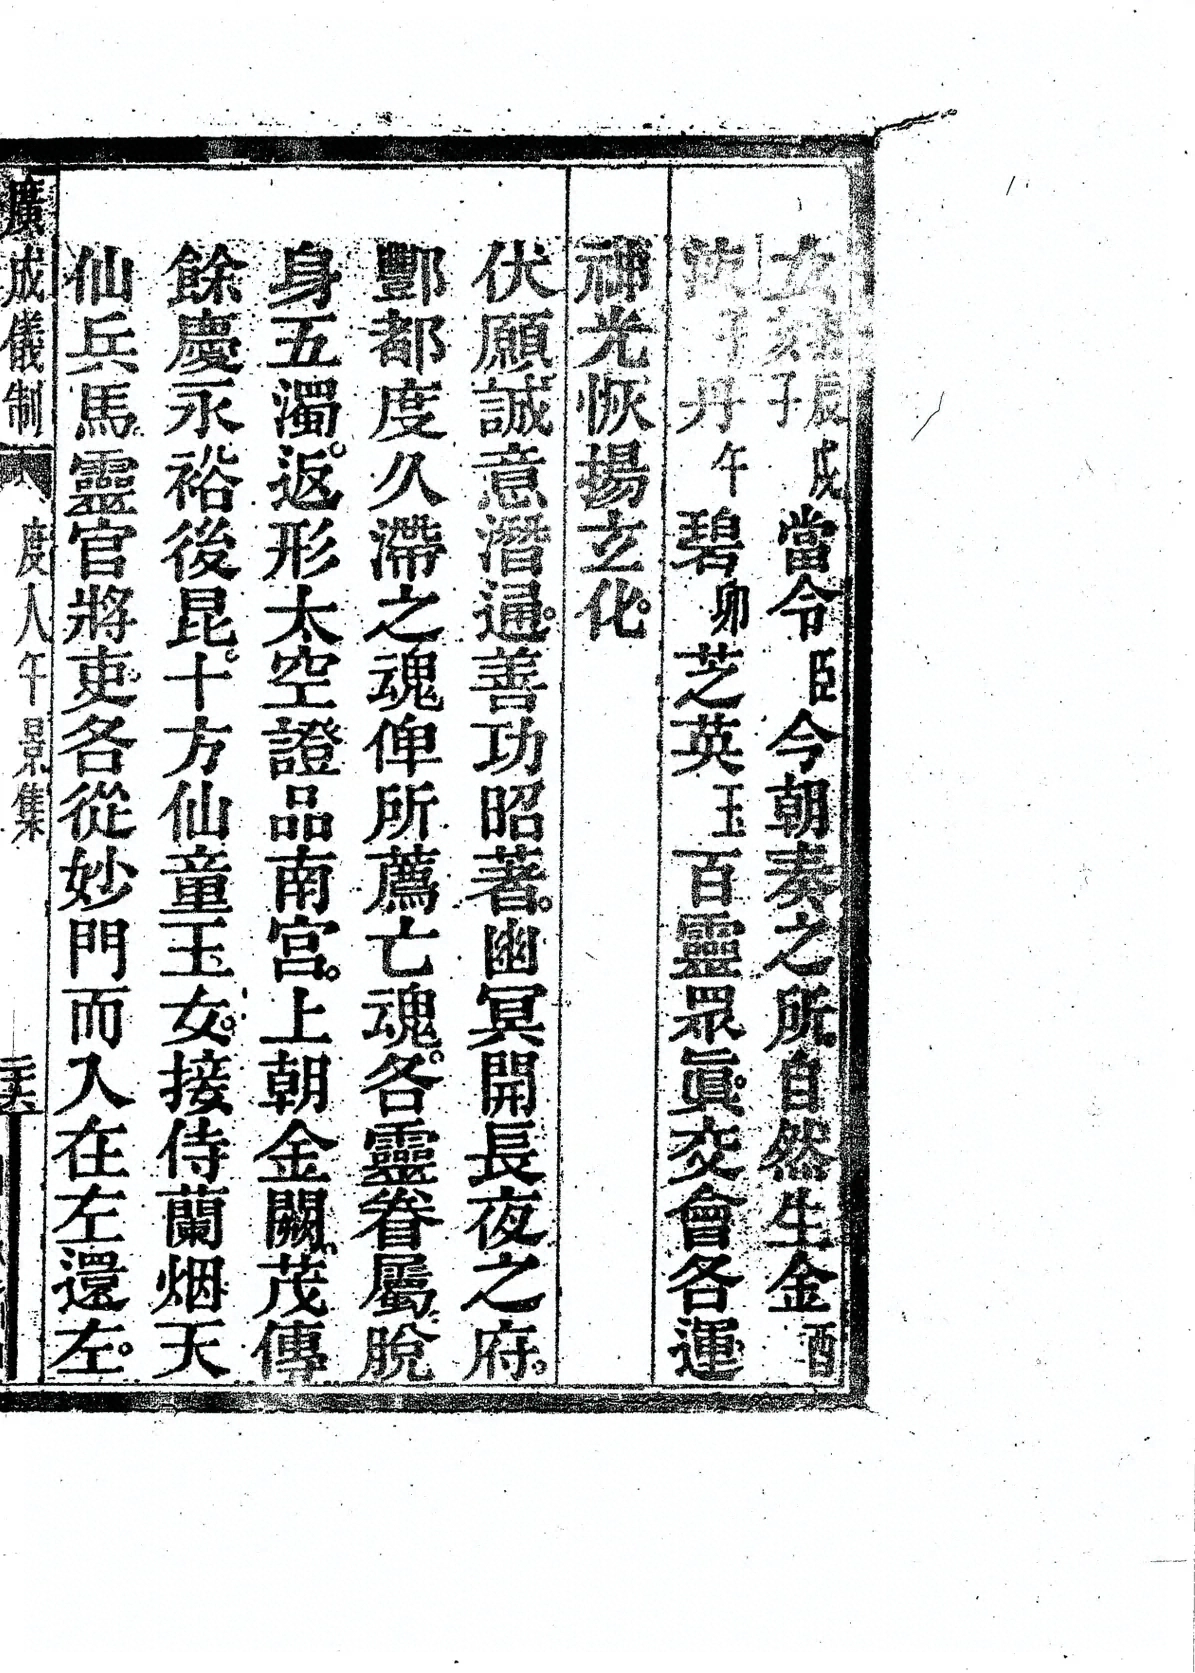 當令臣今朝奏之所自然生金酉
丹午碧卯芝英玉百靈眾眞交會各運
神光恢揚玄化
伏願誠意潛通善功昭著幽冥開長夜之府
酆都度久滯之魂俾所薦亡魂各靈眷屬脫
身五濁返形太空證品南宮上朝金闕茂傳
餘慶永裕後昆十方仙童玉女接侍蘭烟天
仙兵馬靈官將吏各從妙門而入在左還左
廣成儀制 度人午景集 二十六